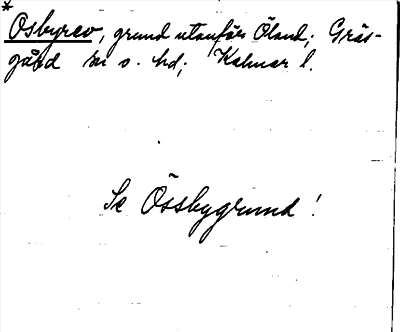 *
Osbyrev, grund utanför Öland; Gräs-
gård sn o. hd; Kalmar l.
Se Össbygrund!